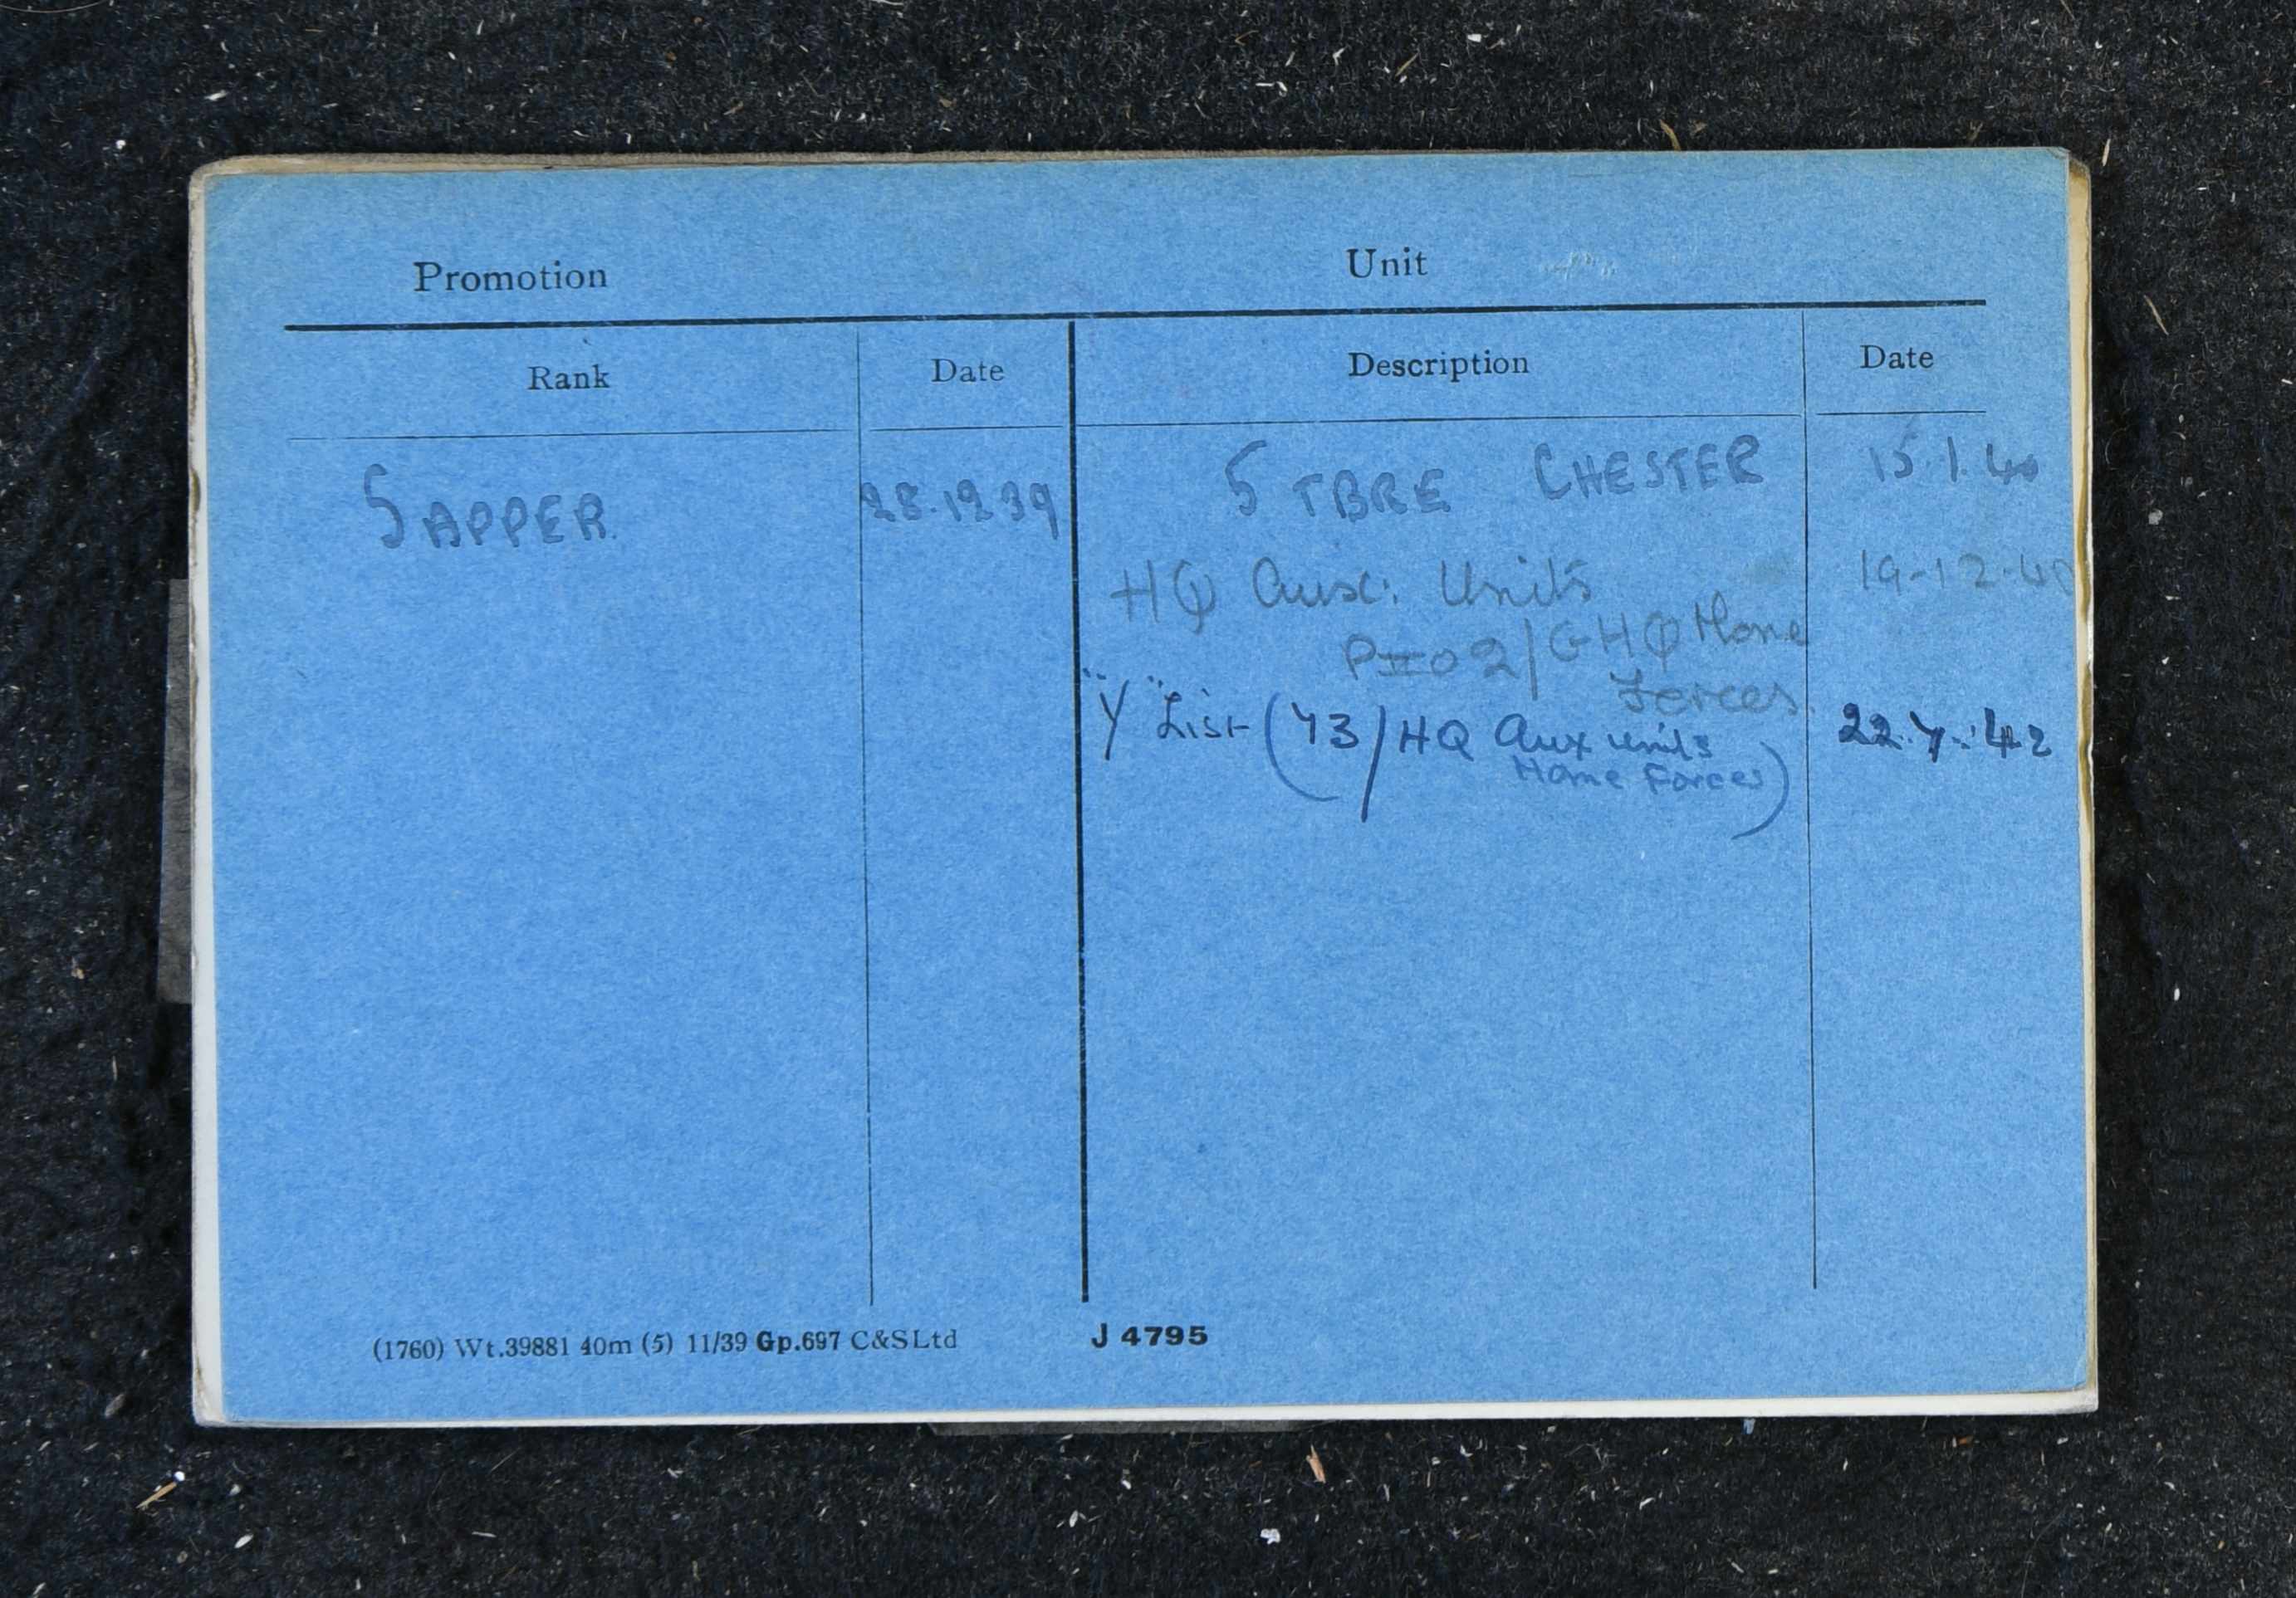 Promotion Unit
Rank Date Description Date
SAPPER 28.12.39 5 TBRE CHESTER 15.1.40
HQ Aux: Units 19-12-40
2/GHQ Home
Forces.
"Y" List (Y3/HQ Aux Units 22.7.42
Home Forces)
(1760) Wt.39881 40m (5) 11/39 Gp.697 C&SLtd J 4795